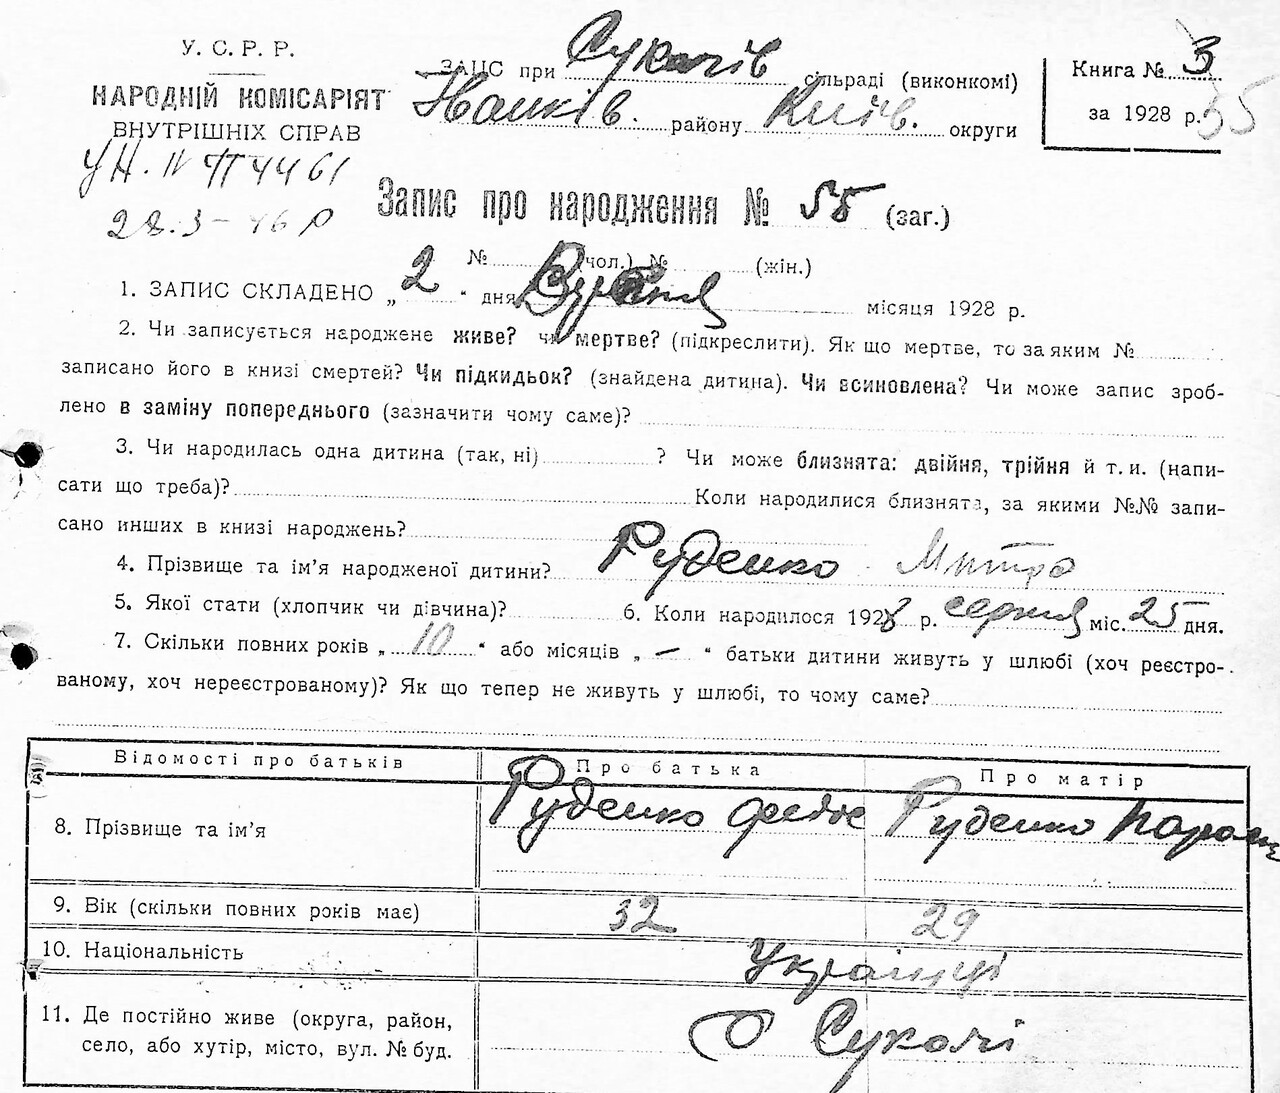 У. С. Р. Р.
НАРОДНІЙ КОМІСАРІЯТ
ВНУТРІШНІХ СПРАВ
ЗАПИС при Сукачів сільраді (виконкомі)
району Київ. округи
Книга № 3
за 1928 р. 55
28.3-46 р
Запис про народження № 55 (заг.)
№ (чол.) № (жін.)
1. ЗАПИС СКЛАДЕНО „ 2 “ дня місяця 1928 р.
2. Чи записується народжене живе? чи мертве? (підкреслити). Як що мертве, то за яким №
записано його в книзі смертей? Чи підкидьок? (знайдена дитина). Чи всиновлена? Чи може запис зроб-
лено в заміну попереднього (зазначити чому саме)?
3. Чи народилась одна дитина (так, ні) ? Чи може близнята: двійня, трійня й т. и. (напи-
сати що треба)? Коли народилися близнята, за якими №№ запи-
сано инших в книзі народжень?
4. Прізвище та ім'я народженої дитини? Руденко Митро
5. Якої стати (хлопчик чи дівчина)? 6. Коли народилося 1928 р. серпня міс. 25 дня.
7. Скільки повних років „ 10 “ або місяців „ — “ батьки дитини живуть у шлюбі (хоч реєстро-
ваному, хоч нереєстрованому)? Як що тепер не живуть у шлюбі, то чому саме?
Відомості про батьків Про батька Про матір
8. Прізвище та ім'я Руденко Руденко
9. Вік (скільки повних років має) 32 29
10. Національність Українці
11. Де постійно живе (округа, район,
село, або хутір, місто, вул. № буд. Сукачі